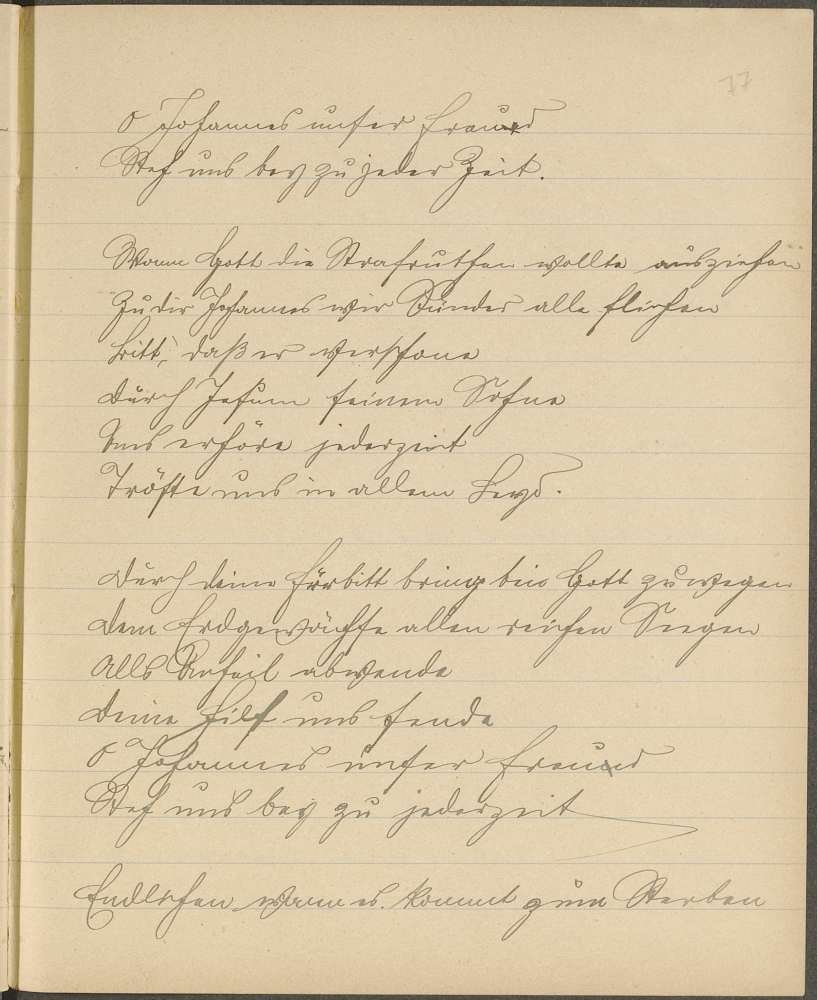 77
O Johannes unser Freund
Steh uns bey zu jeder Zeit.
Wann Gott die Strafruthen wollte ausziehen
Zu dir Johannes wir Sünder alle fliehen
Bitt, daß er verschone
Durch Jesum seinem Sohne
Uns erhöre jederzeit
Tröste uns in allem Leyd.
Durch deine Fürbitt bring bei Gott zuwegen
Dem Erdgewächse allen reichen Seegen
Alls Unheil abwende
Deine Hilf uns sende
O Johannes unser Freund
Steh uns bey zu jederzeit
Endlichen wann es kommt zum Sterben